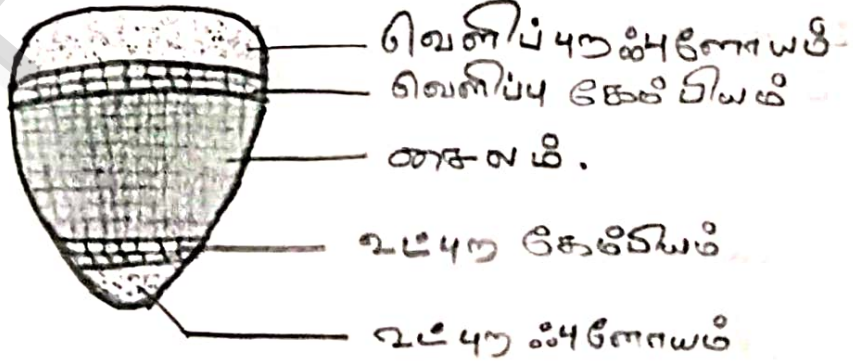 வெளிப்புற ஃபுளோயம்
வெளிப்பு கேம்பியம்
சைலம்.
உட்புற கேம்பியம்
உட்புற ஃபுளோயம்